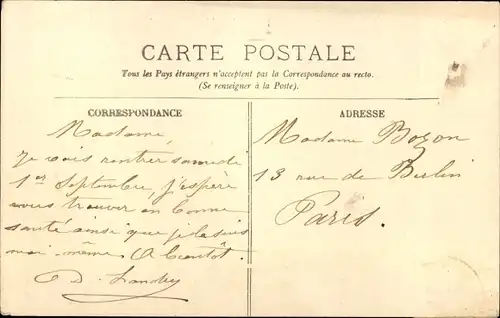 CARTE POSTALE
Tous les Pays étrangers n'acceptent pas la Correspondance au recto.
(Se renseigner à la Poste).
CORRESPONDANCE
Madame,
Je vais rentrer samedi
1er Septembre, j'espère
vous trouver en bonne
santé ainsi que je la suis
moi-même. A bientôt.
D. Landry
ADRESSE
Madame Bozon
13 rue de Berlin
Paris.